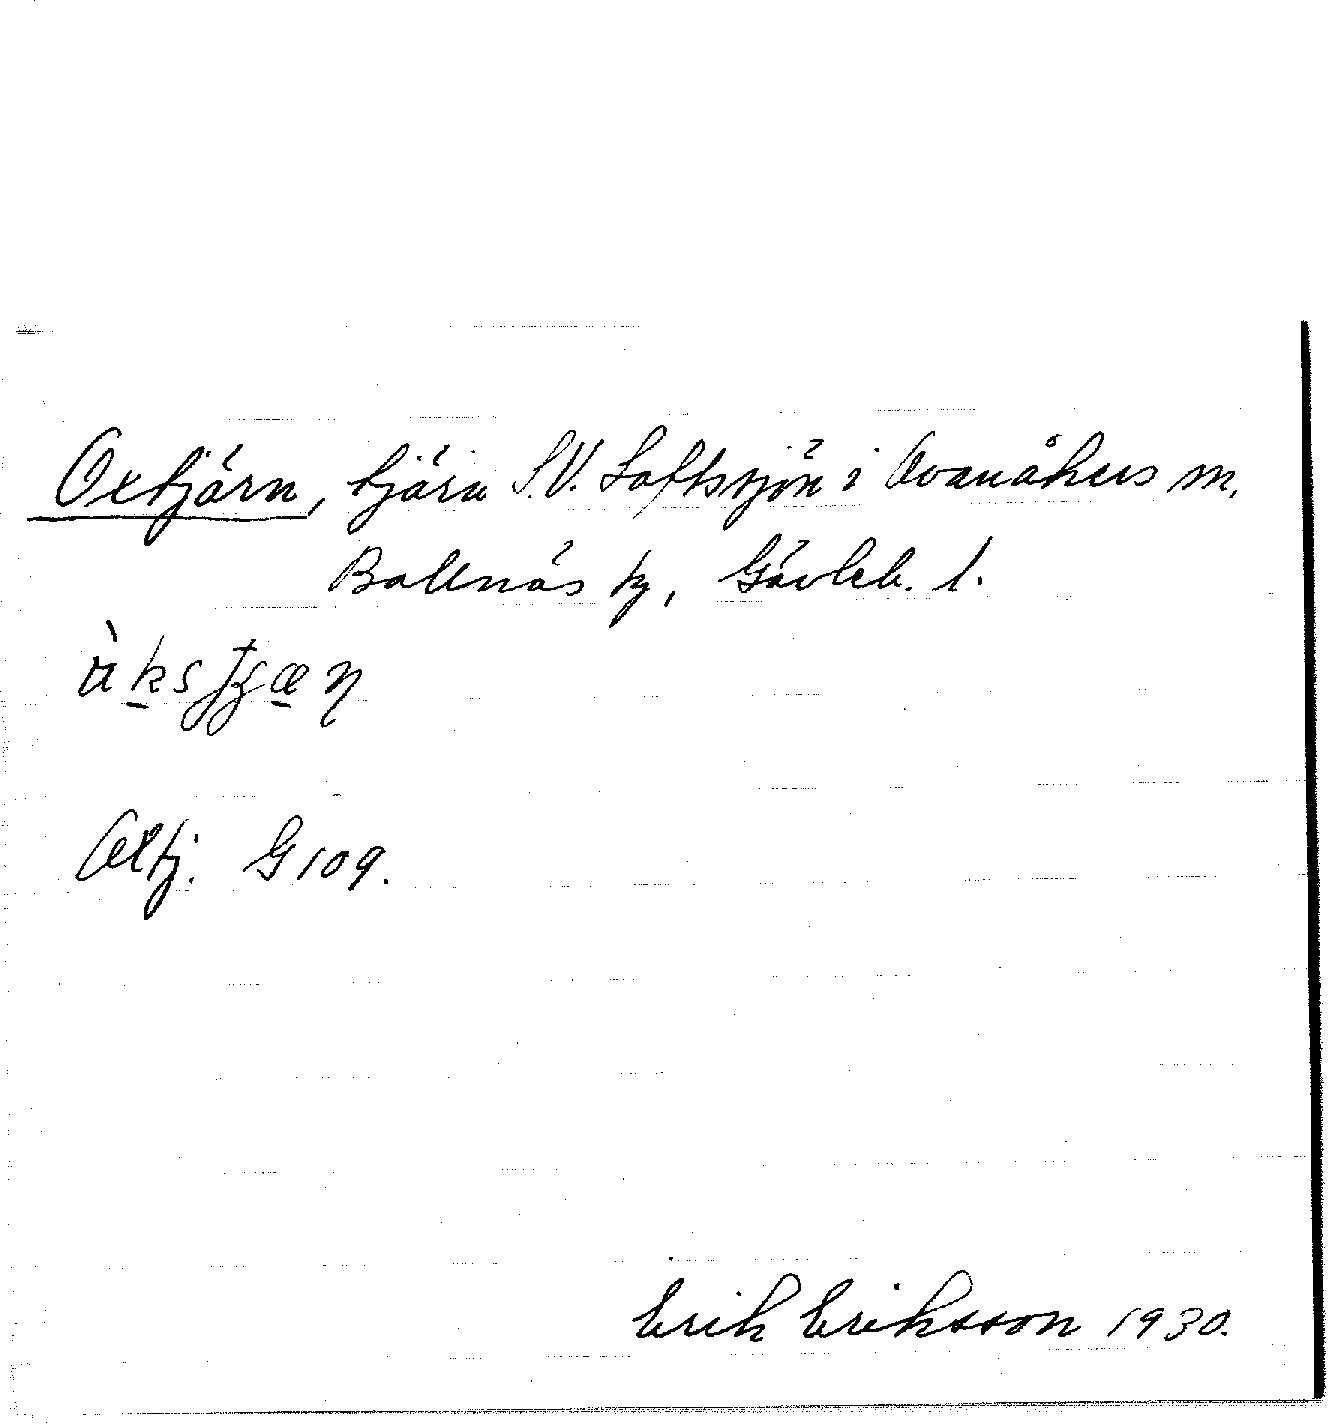 Oxtjärn, tjärn S.V. Loftssjön i Ovanåkers sn.
Bollnäs tg, Gävleb. l.
Oxtj. G109.
Erik Eriksson 1930.